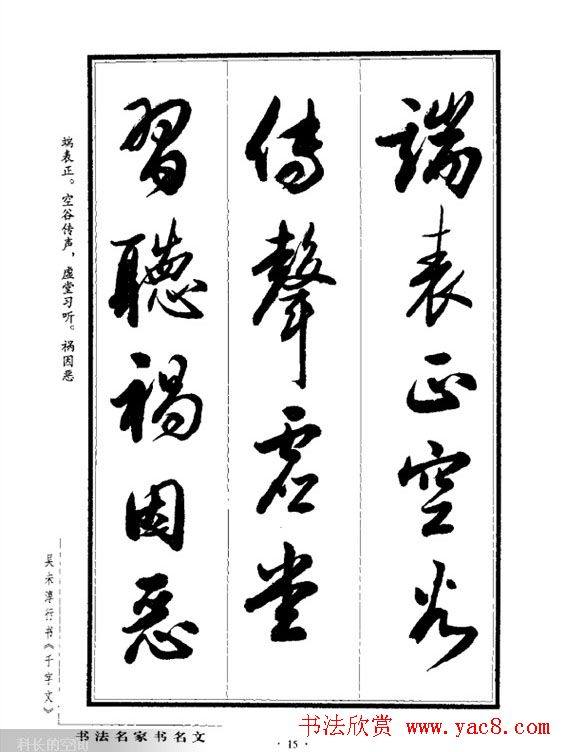 端表正空谷
傳聲虚堂
習聽禍因惡
端表正。空谷传声,虚堂习听。祸因恶
吴未淳行书《千字文》
书法名家书名文
·15·
书法欣赏 www.yac8.com
科长的空间